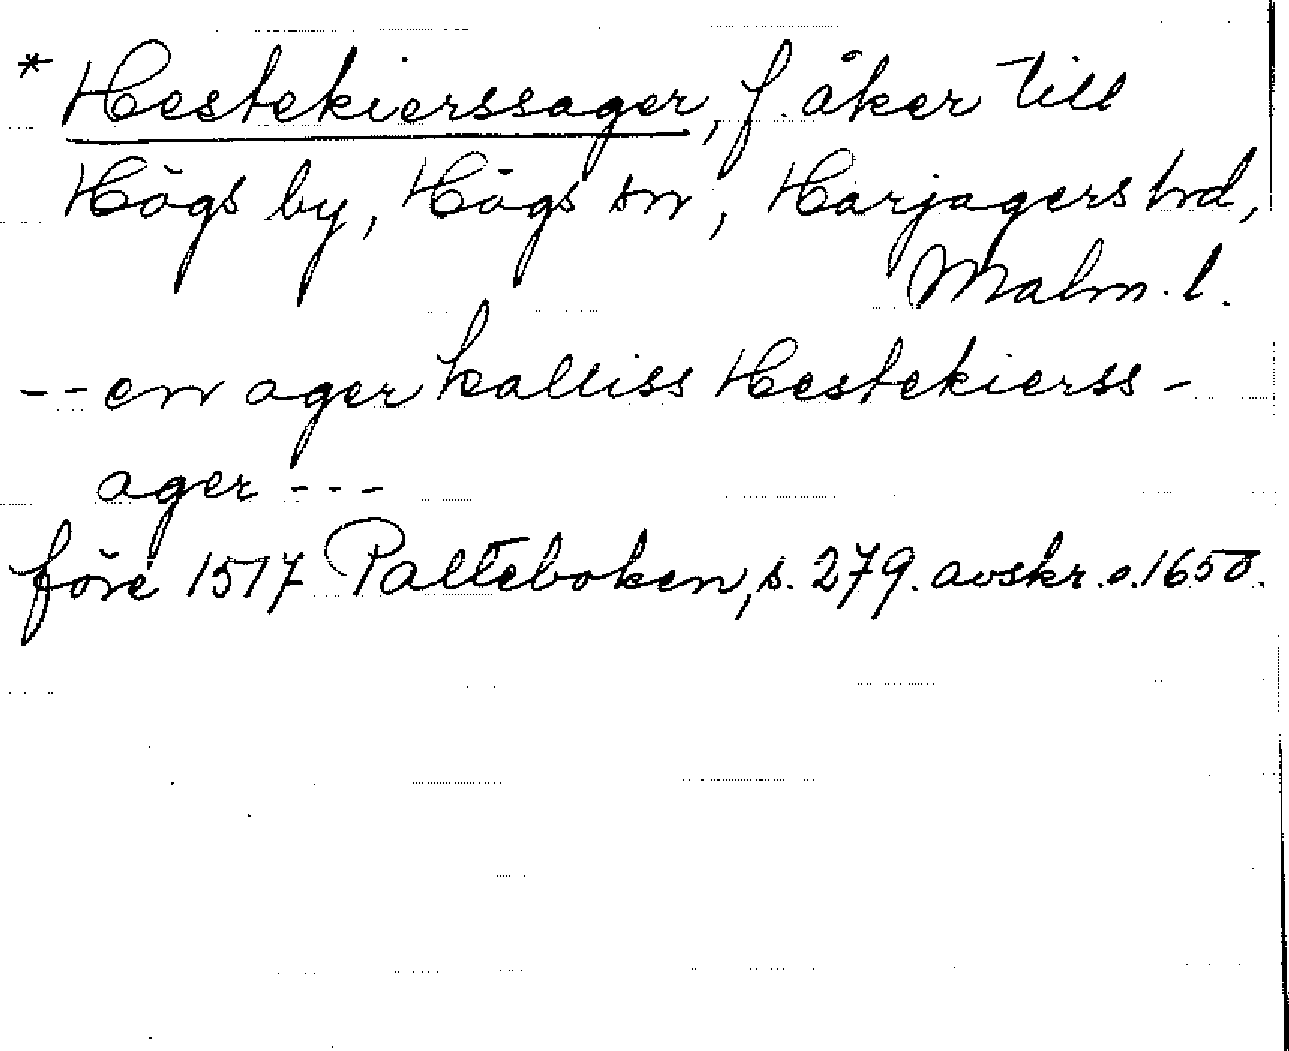 * Hestekierssager, f. åker till
Högs by, Högs sn, Harjagers hrd,
Malm. l.
-- en ager kalliss Hestekierss-
ager ---
före 1517 Palteboken, s. 279. avskr. o. 1650.